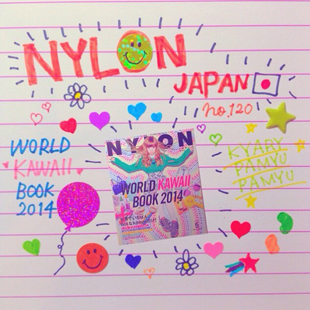 NYLON
JAPAN
no.120
WORLD
KAWAII
BOOK
2014
NYLON
WORLD KAWAII
BOOK 2014
KYARY
PAMYU
PAMYU